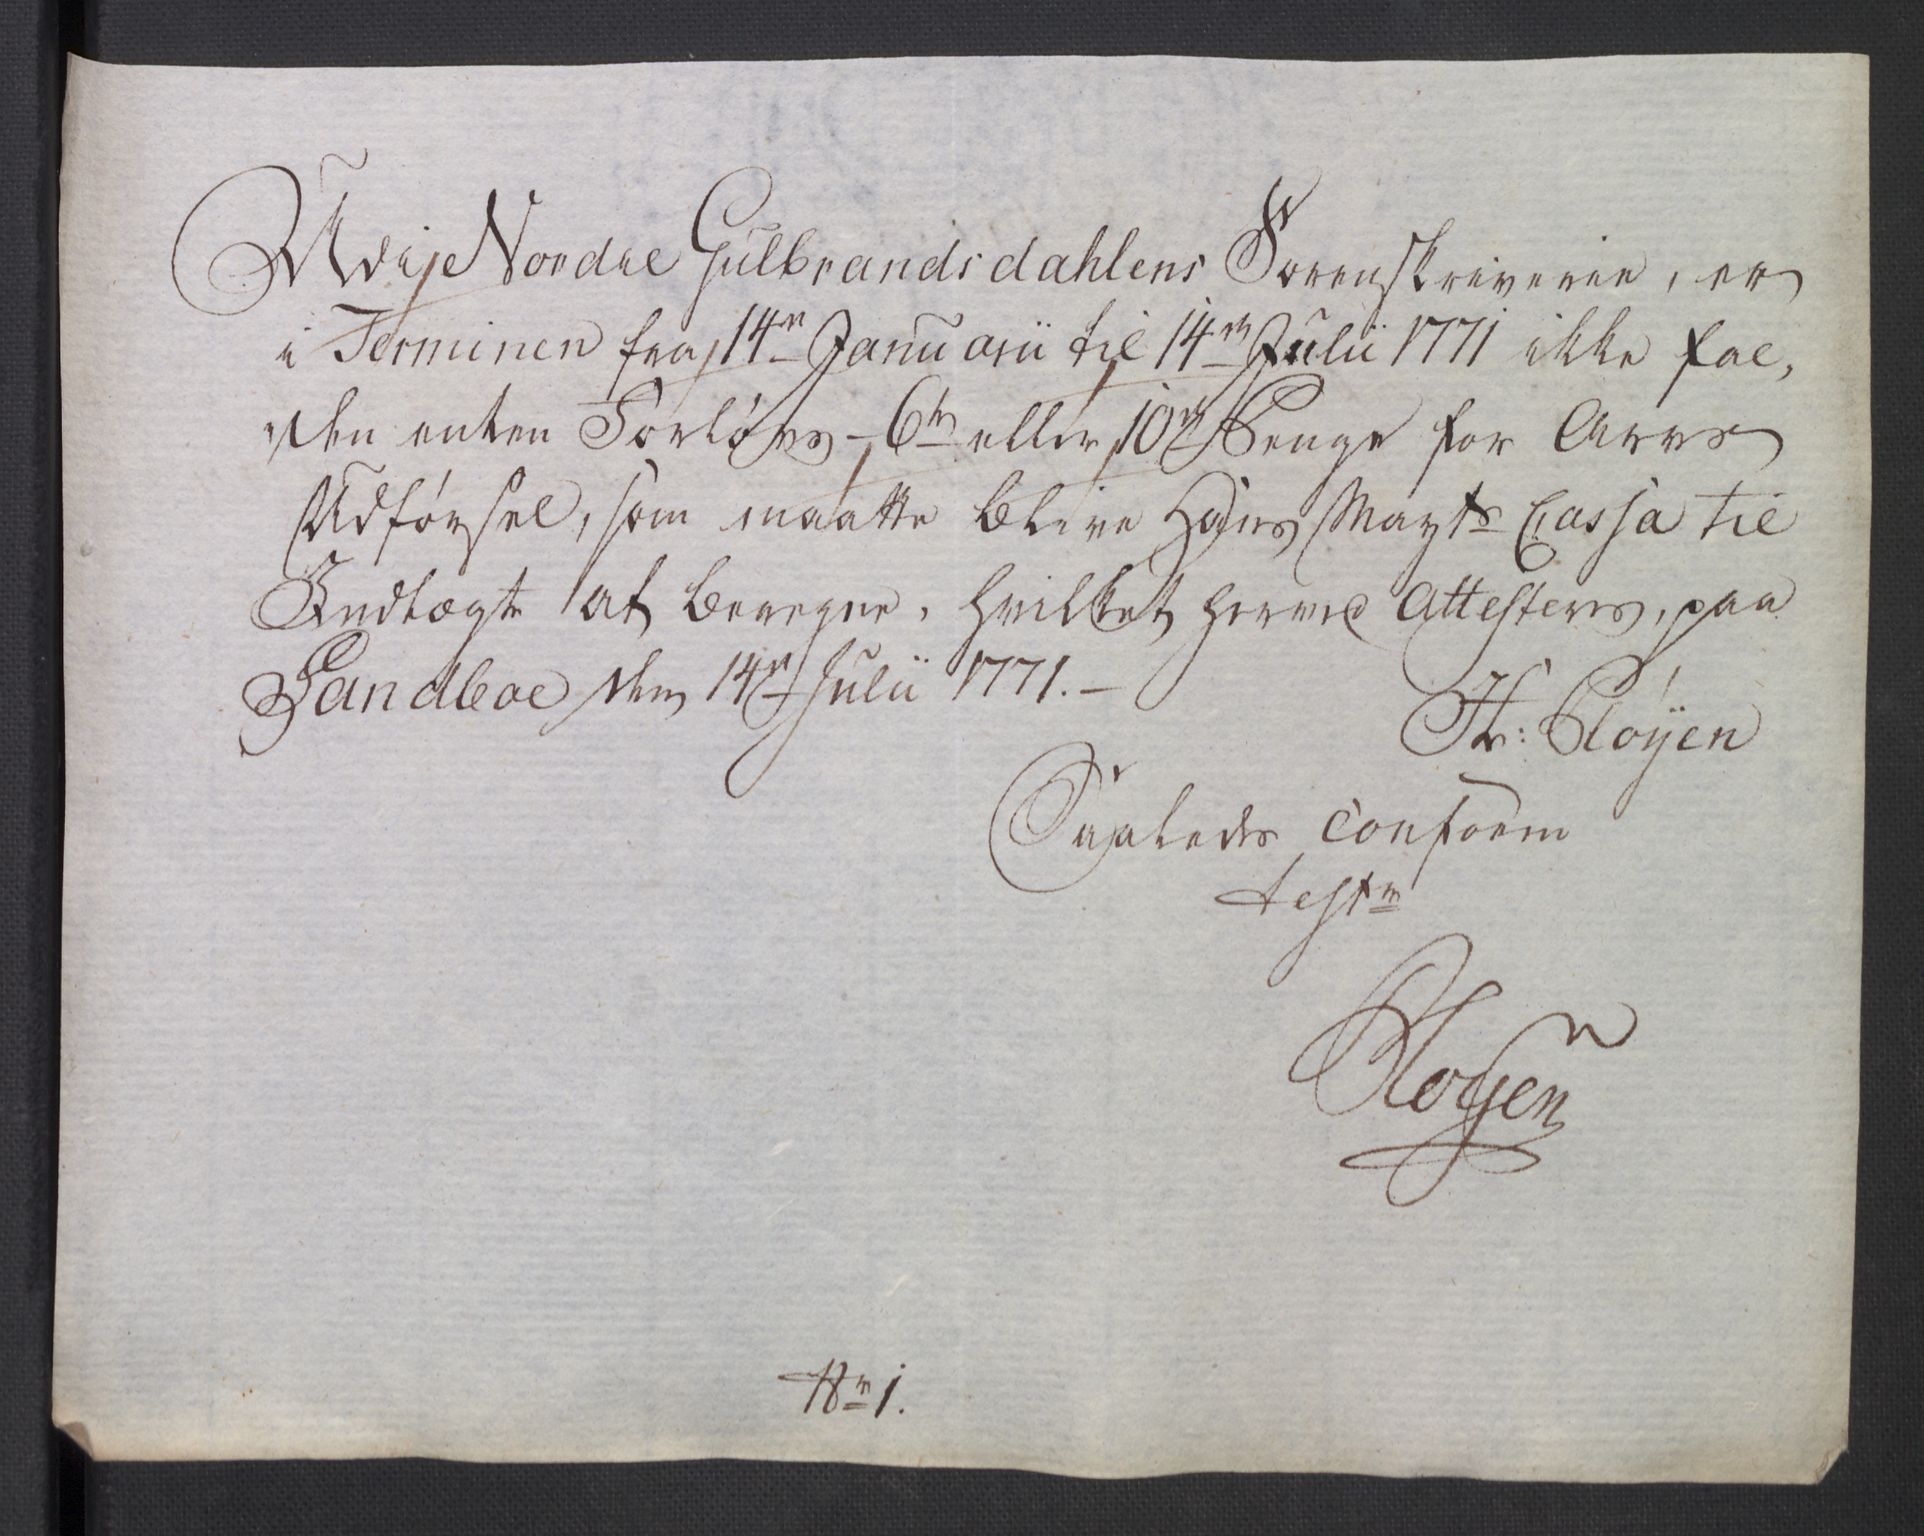 Udi Nordre Gulbrandsdahlens Sorenskriverie, er
i Terminen fra 14de Januarii til 14de Julii 1771 ikke fal,
den enten Forlovs 6te eller 10de Penge for Arvs
Udførsel, som maatte blive Hans Mayts Cassa til
Indtægt at beregne, hvilket herved Attesteres, paa
Sandboe den 14de Julii 1771. –
H: Pløyen
Saaledes conform
test
Pløyen
No 1.